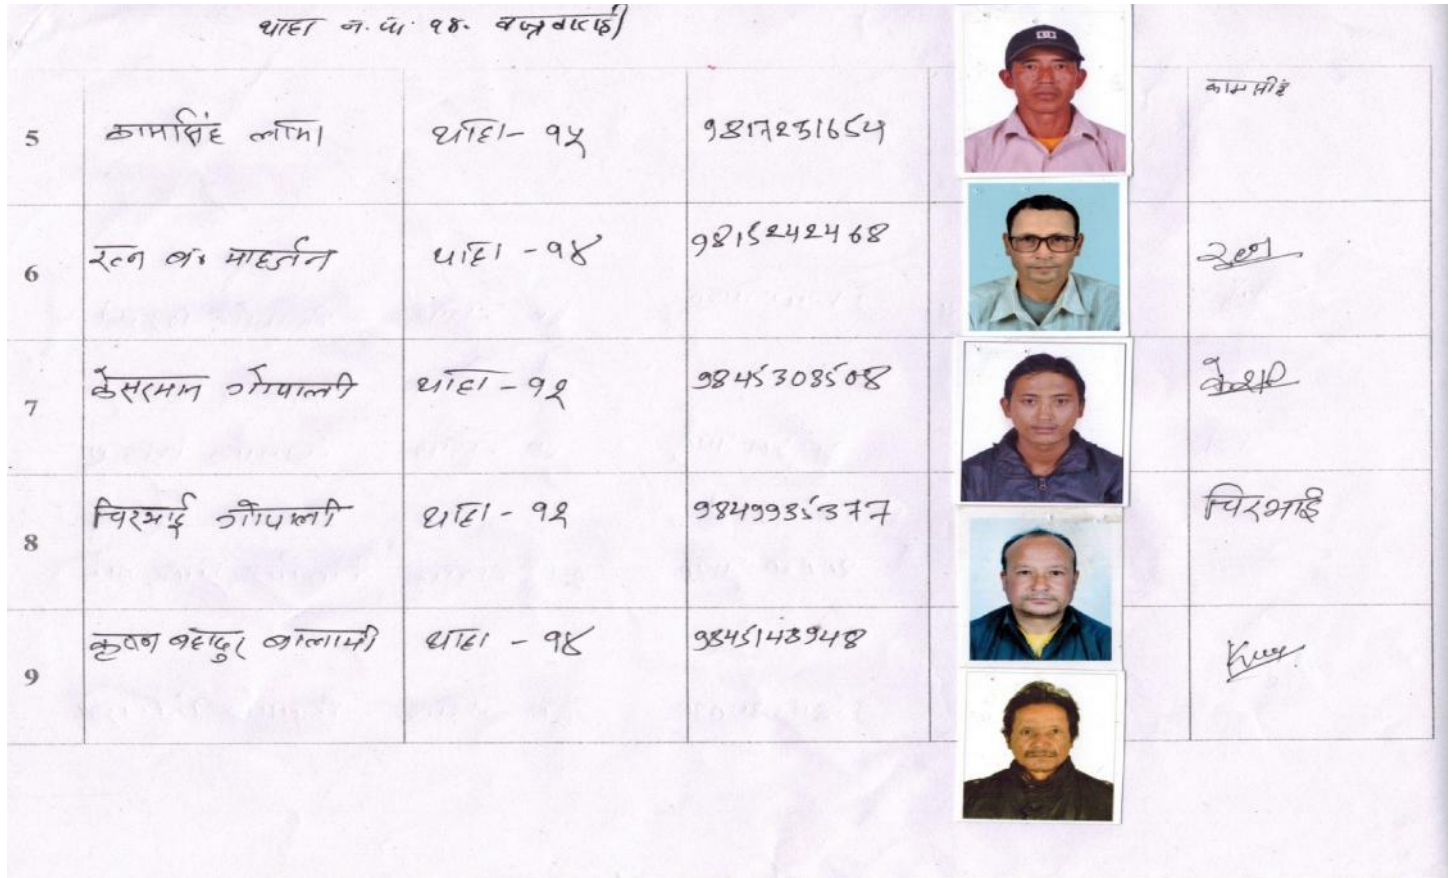 थाहा न.पा. १४. बज्रबाराही
5 कामसिंह लामा थाहा- १५ 9817231654 कामसिंह
6 रत्न ब. माहर्जन थाहा - १४ 9815242468 रत्न
7 केसरमान गोपाली थाहा - १२ 9845303508 केशर
8 चिरभाई गोपाली थाहा - १२ 9849935377 चिरभाई
9 कृष्ण बहादुर बालामी थाहा - १४ 9845148948